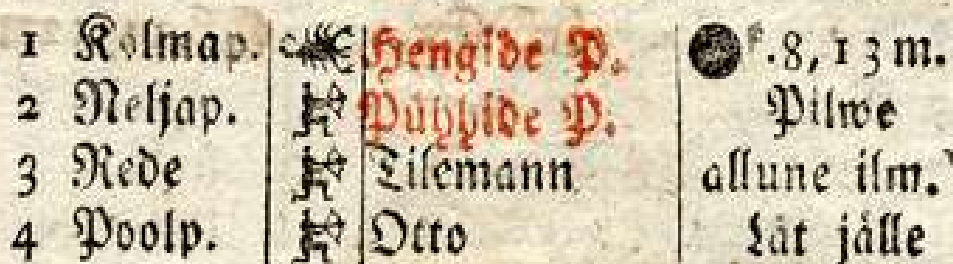 1 Kolmap. Hengide P. .8, 13 m.
2 Neljap. Pühhide P. Pilwe
3 Rede Tilemann allune ilm.
4 Poolp. Otto Lät jälle